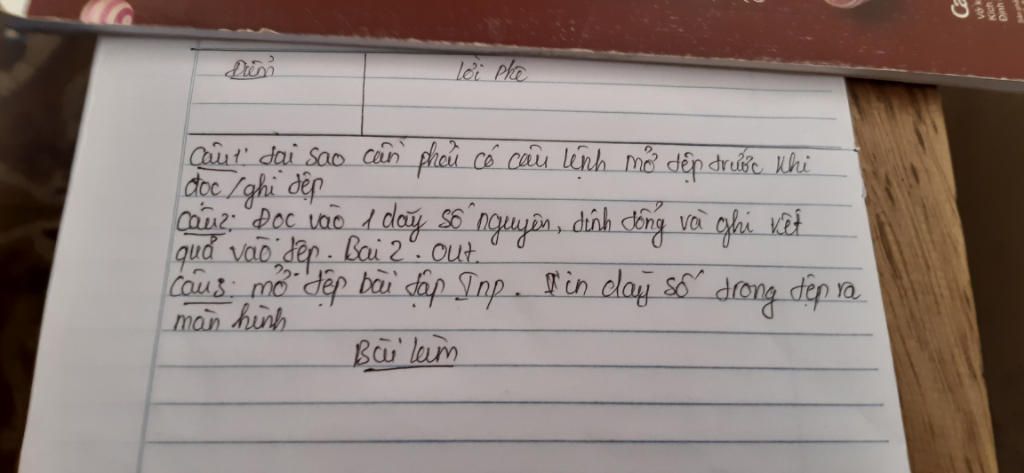 Ca
Vở k
Kích
Định
Điểm
lời phê
Câu1: tại sao cần phải có câu lệnh mở tệp trước khi
đọc/ghi tệp
Câu2: Đọc vào 1 dãy số nguyên, tính tổng và ghi kết
quả vào tệp. Bai 2. out.
Câu3: mở tệp bài tập Inp. In dãy số trong tệp ra
màn hình
Bài làm